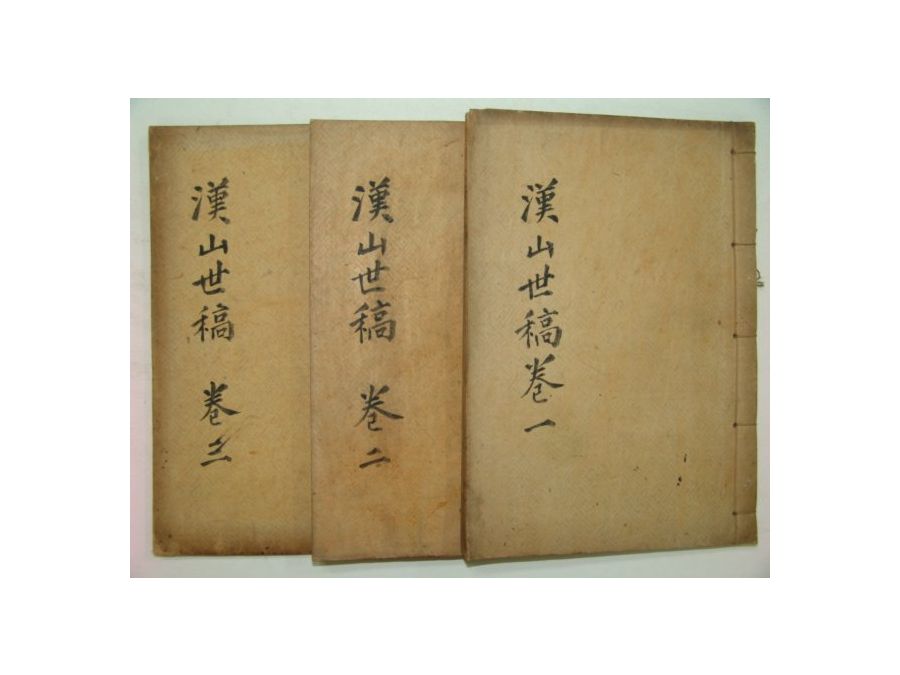 漢山世稿卷一
漢山世稿 卷二
漢山世稿 卷三